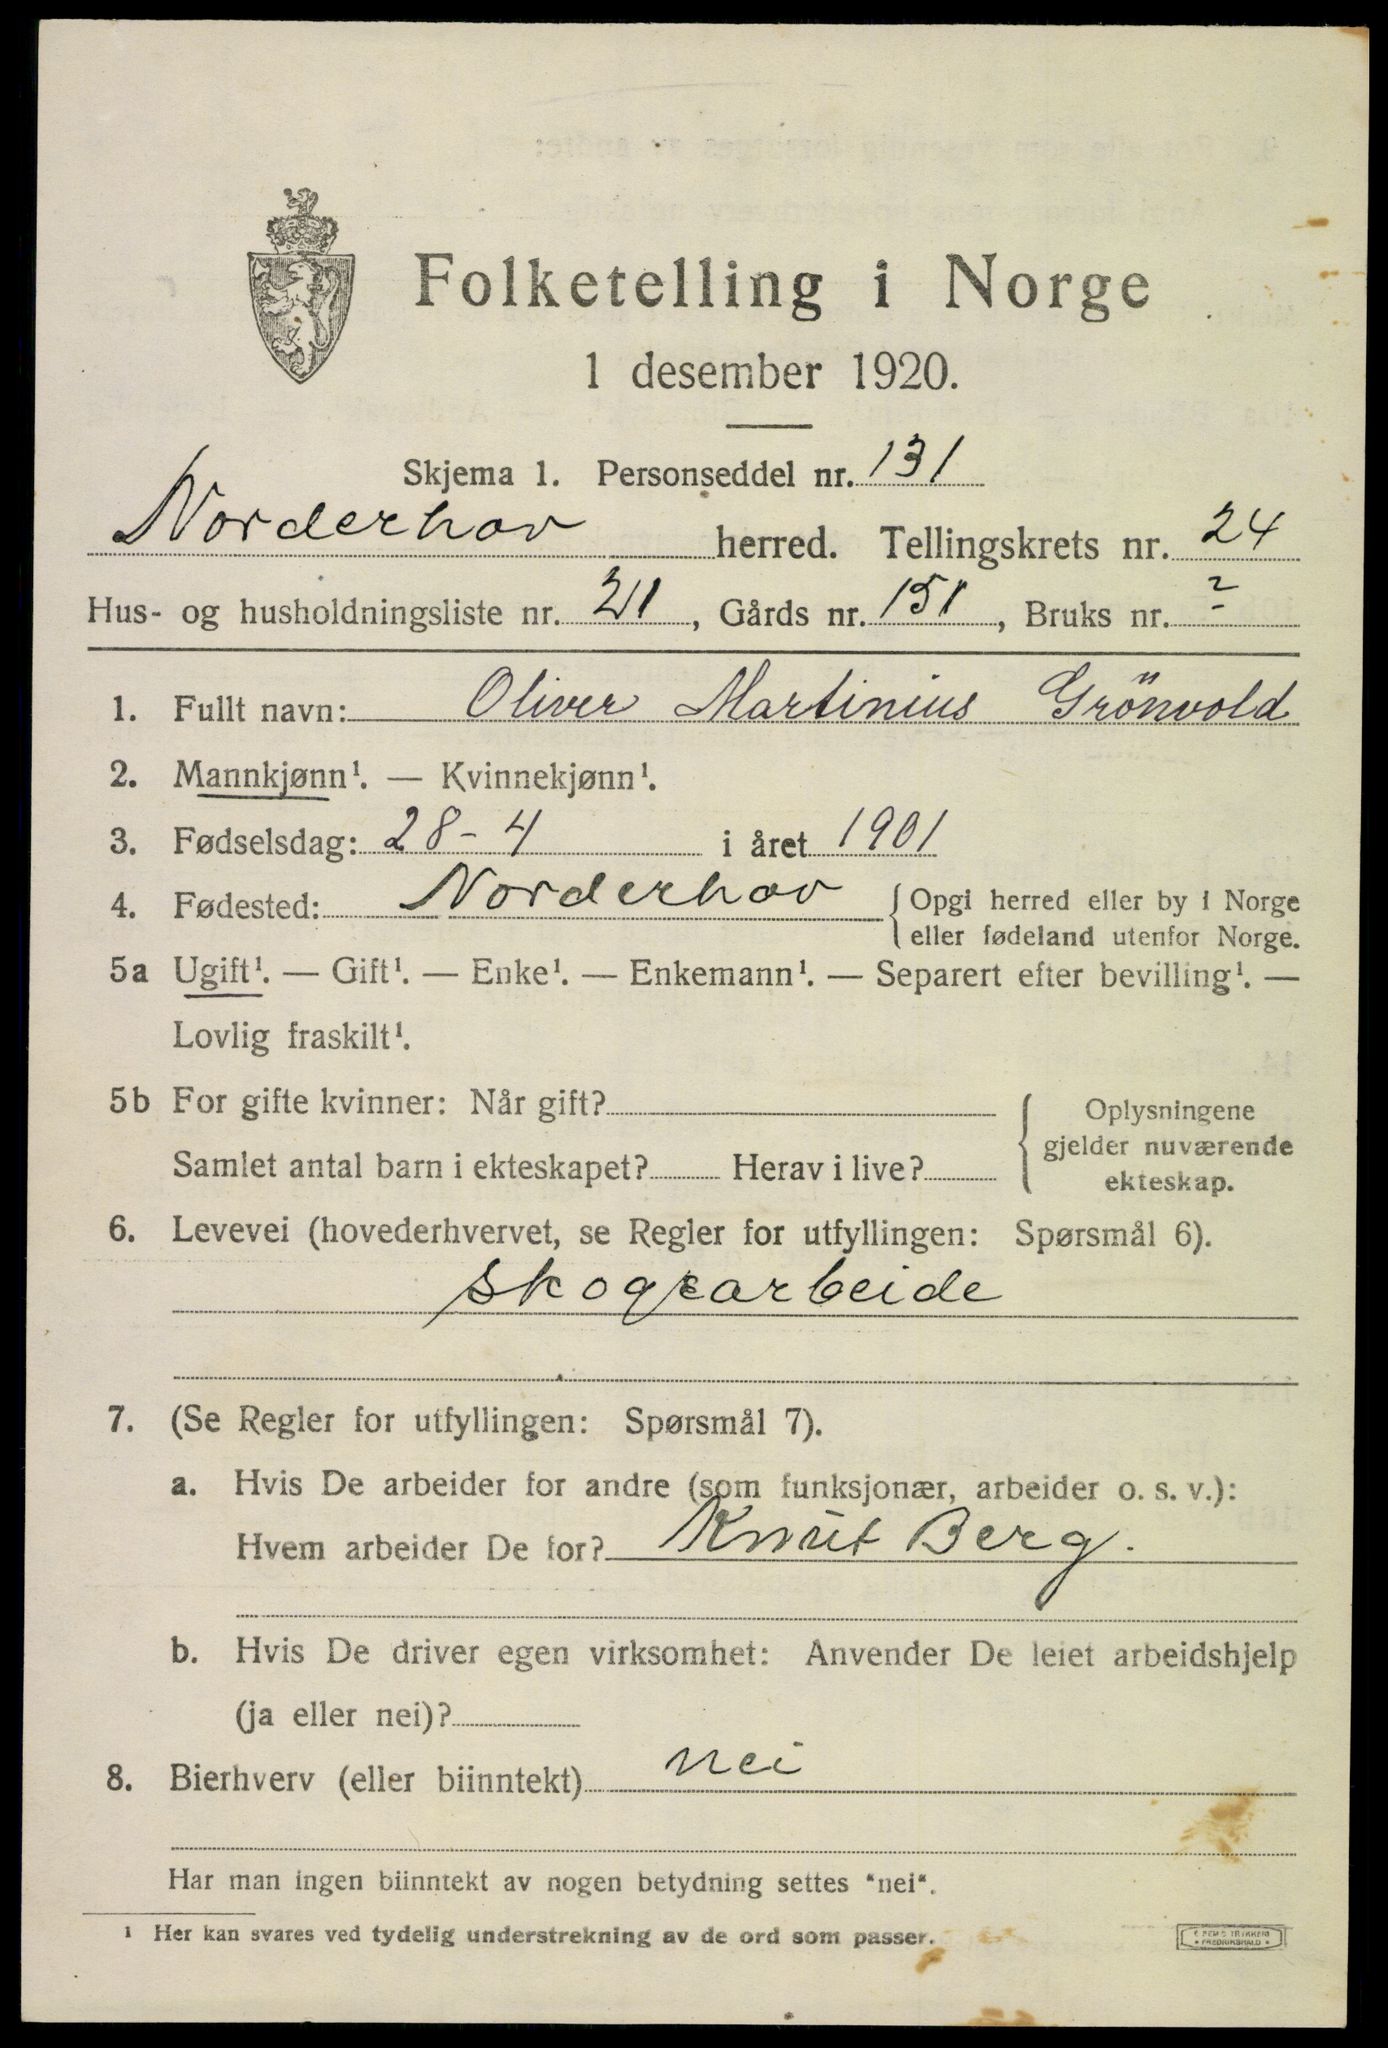 Folketelling i Norge
1 desember 1920.
Skjema 1. Personseddel nr. 131
Norderhov herred. Tellingskrets nr. 24
Hus- og husholdningsliste nr. 21, Gårds nr. 151, Bruks nr.
1. Fullt navn: Oliver Martinius Grönvold
2. Mannkjønn¹. — Kvinnekjønn¹.
3. Fødselsdag: 28-4 i året 1901
4. Fødested: Norderhov {Opgi herred eller by i Norge
eller fødeland utenfor Norge.
5a Ugift¹. — Gift¹. — Enke¹. — Enkemann¹. — Separert efter bevilling¹. —
Lovlig fraskilt¹.
5b For gifte kvinner: Når gift? { Oplysningene
gjelder nuværende
Samlet antal barn i ekteskapet? Herav i live?
ekteskap.
6. Levevei (hovederhvervet, se Regler for utfyllingen: Spørsmål 6).
skogsarbeide
7. (Se Regler for utfyllingen: Spørsmål 7).
a. Hvis De arbeider for andre (som funksjonær, arbeider o. s. v.):
Hvem arbeider De for? Knut Berg.
b. Hvis De driver egen virksomhet: Anvender De leiet arbeidshjelp
(ja eller nei)?
8. Bierhverv (eller biinntekt) nei
Har man ingen biinntekt av nogen betydning settes "nei".
¹ Her kan svares ved tydelig understrekning av de ord som passer.